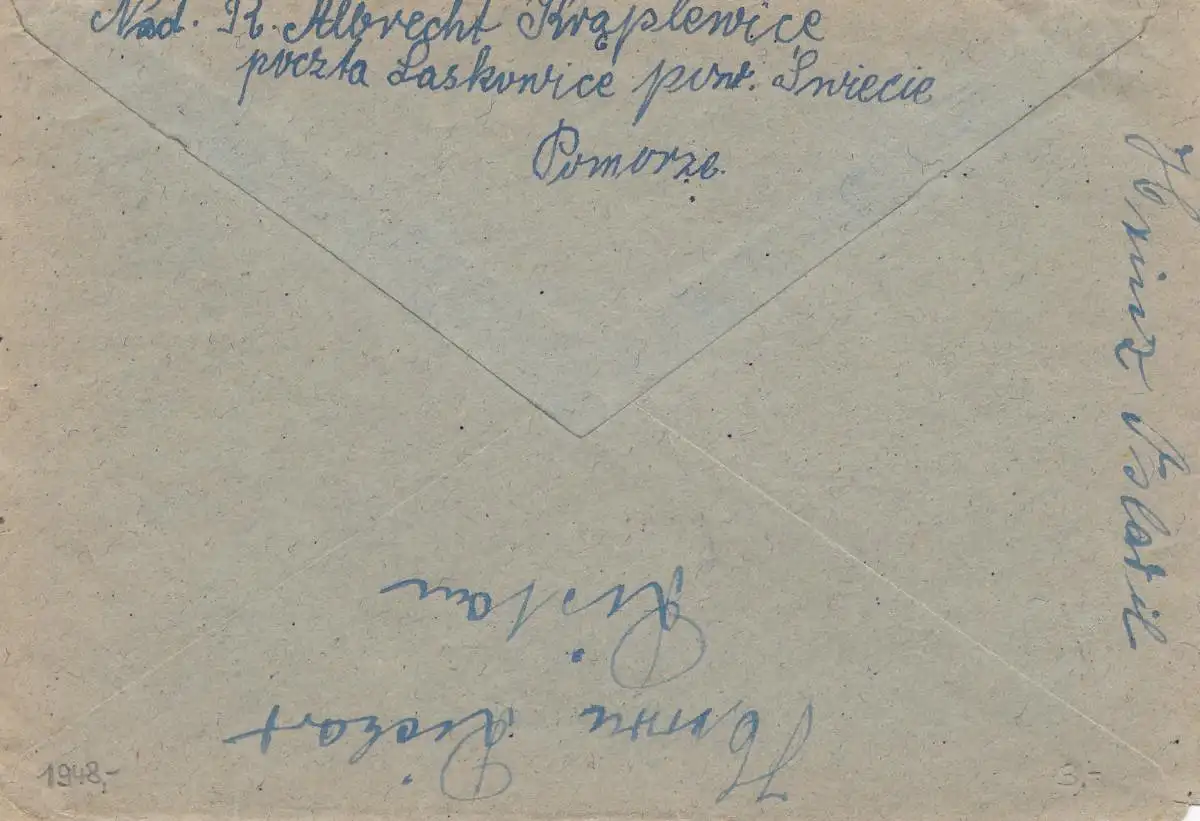 Nad. R. Albrecht Krąplewice
poczta Laskowice pow. Świecie
Pomorze.
Heinz
Herrn
1948,-
3,-